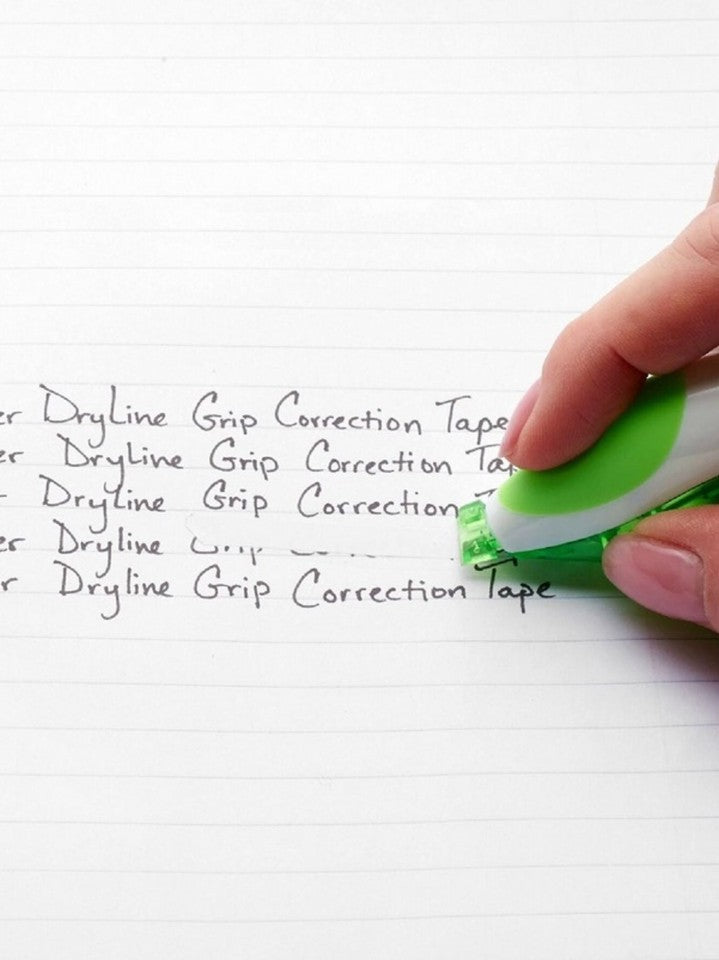 er DryLine Grip Correction Tape
er Dryline Grip Correction
Dryline Grip Correction
er Dryline
r Dryline Grip Correction Tape